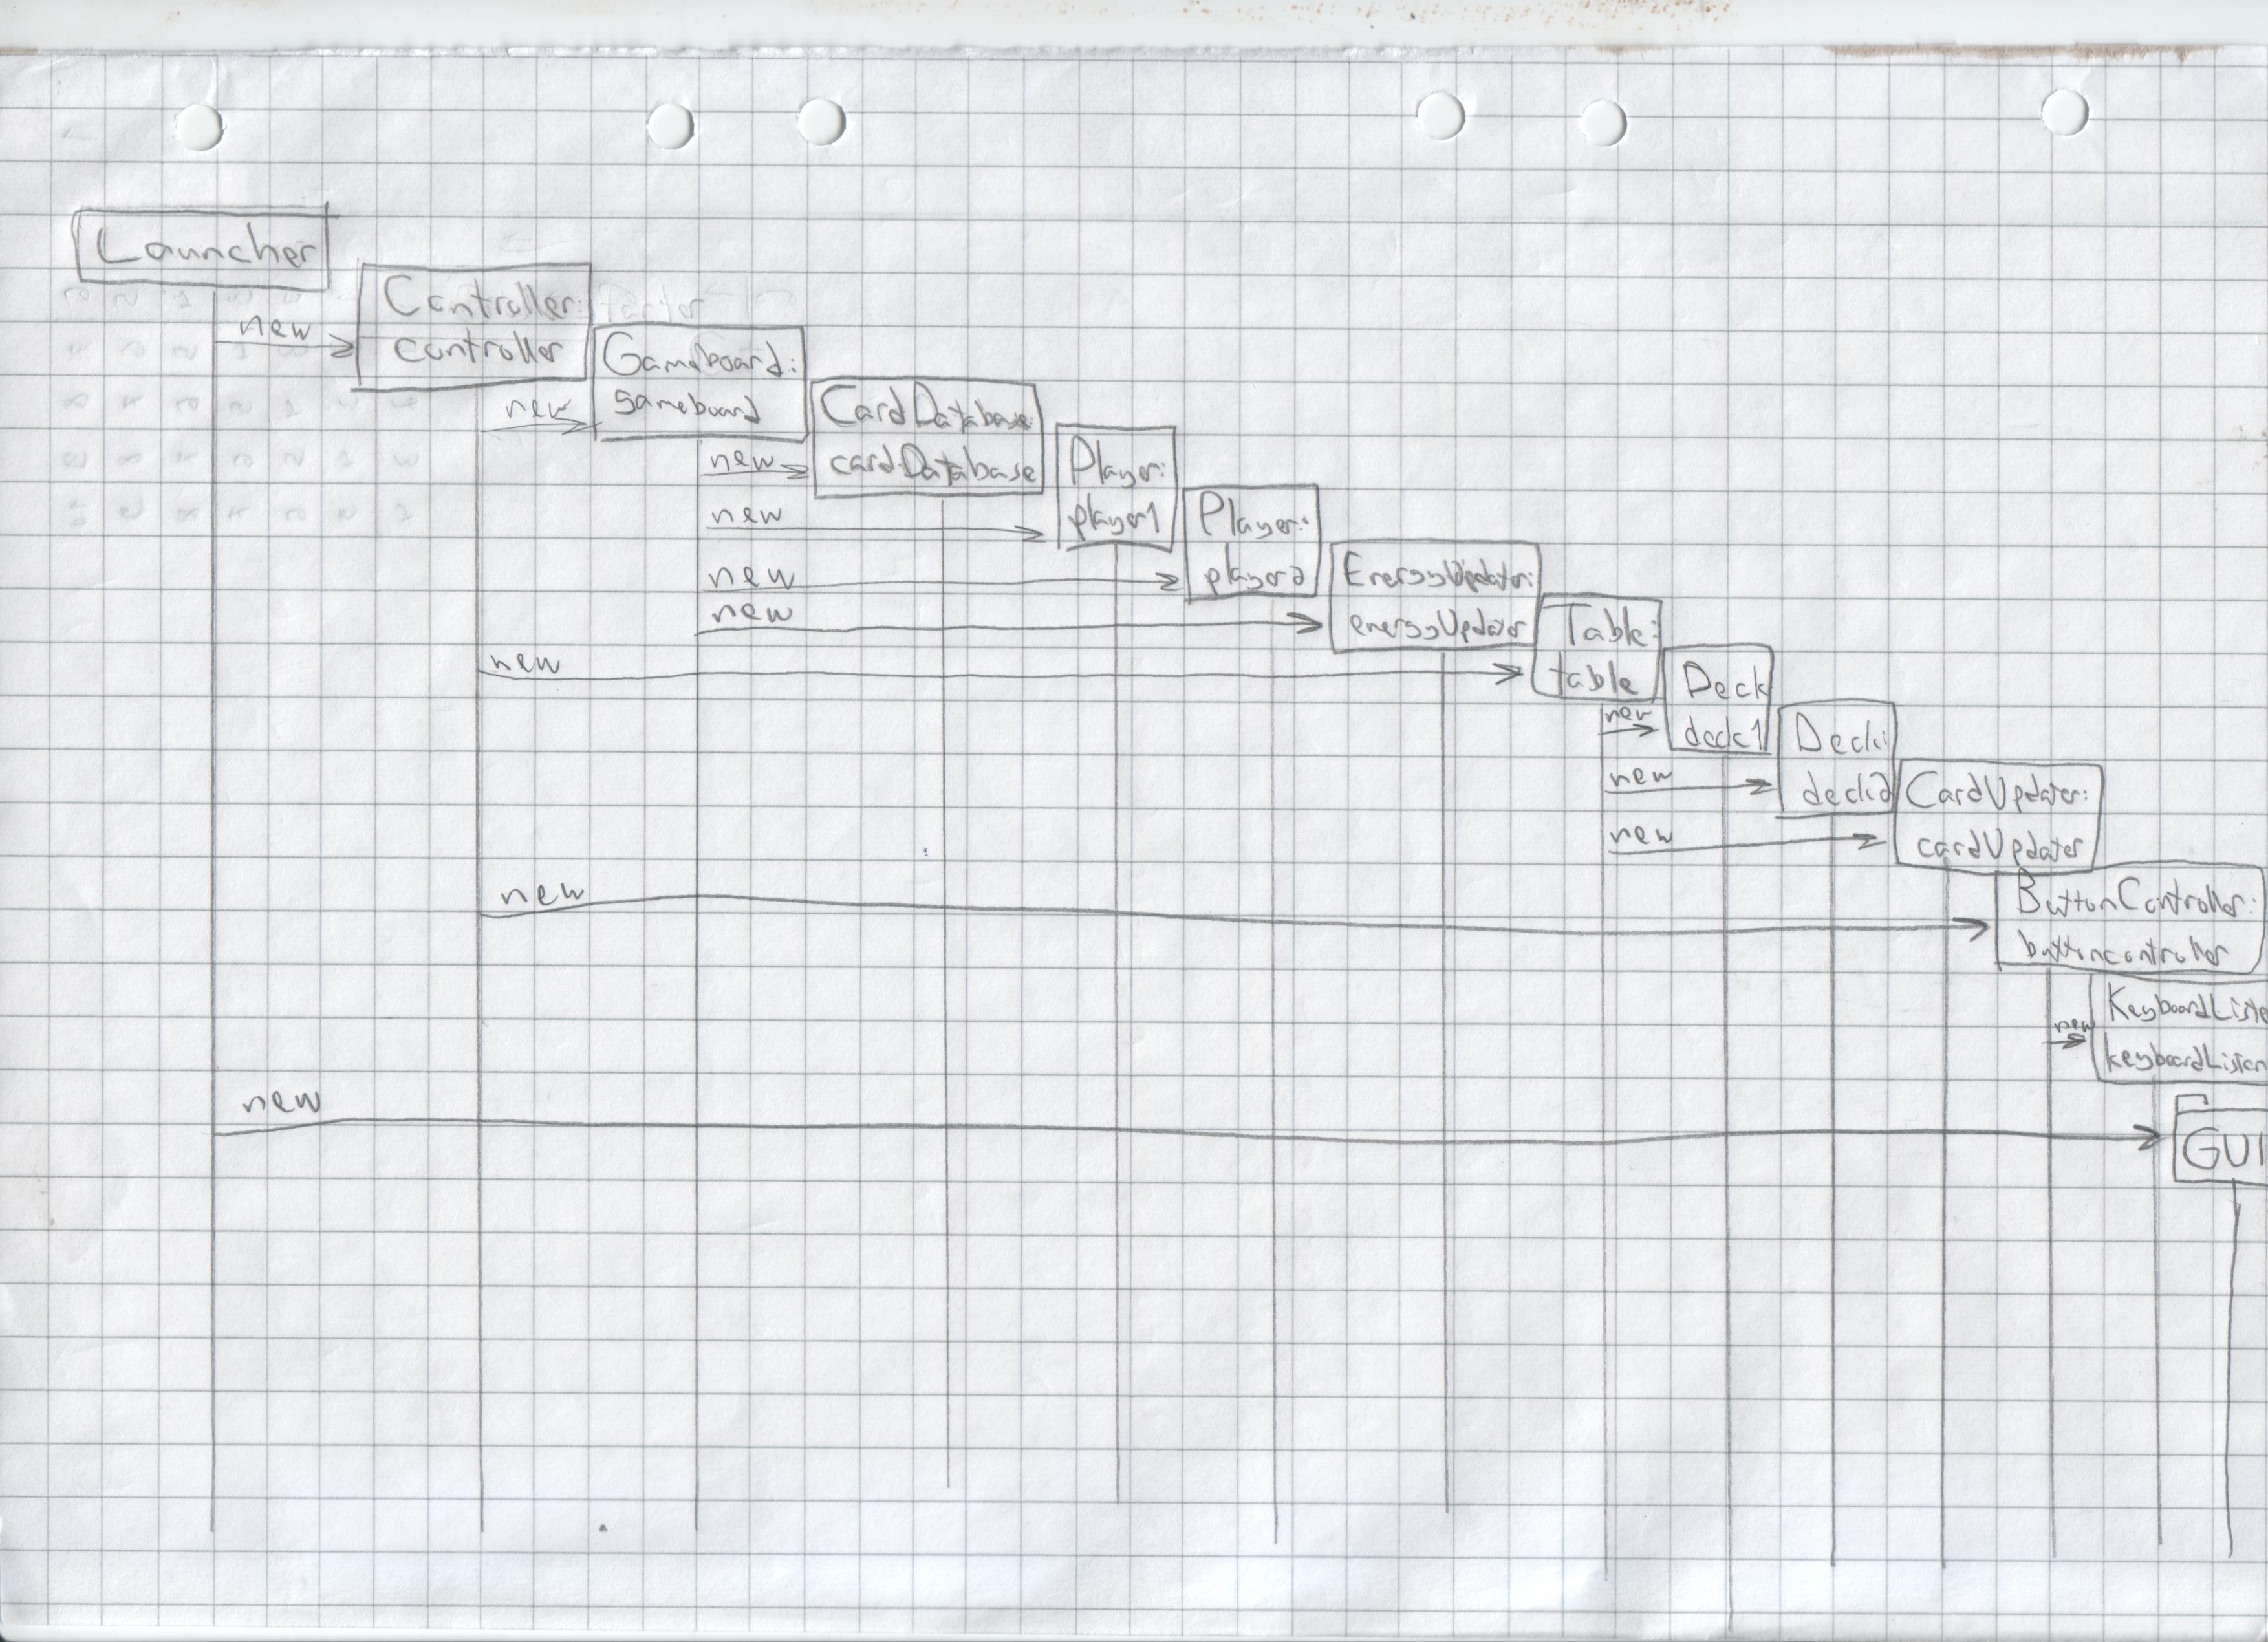 Launcher
new
Controller:
controller
new
Gameboard:
gameboard
new
CardDatabase:
cardDatabase
new
Player:
player1
new
Player:
player2
new
EnergyUpdater:
energyUpdater
new
Table:
table
new
Deck
deck1
new
Deck:
deck2
new
CardUpdater:
cardUpdater
new
ButtonController:
buttoncontroller
new
KeyboardListe
keyboardListen
new
GUI